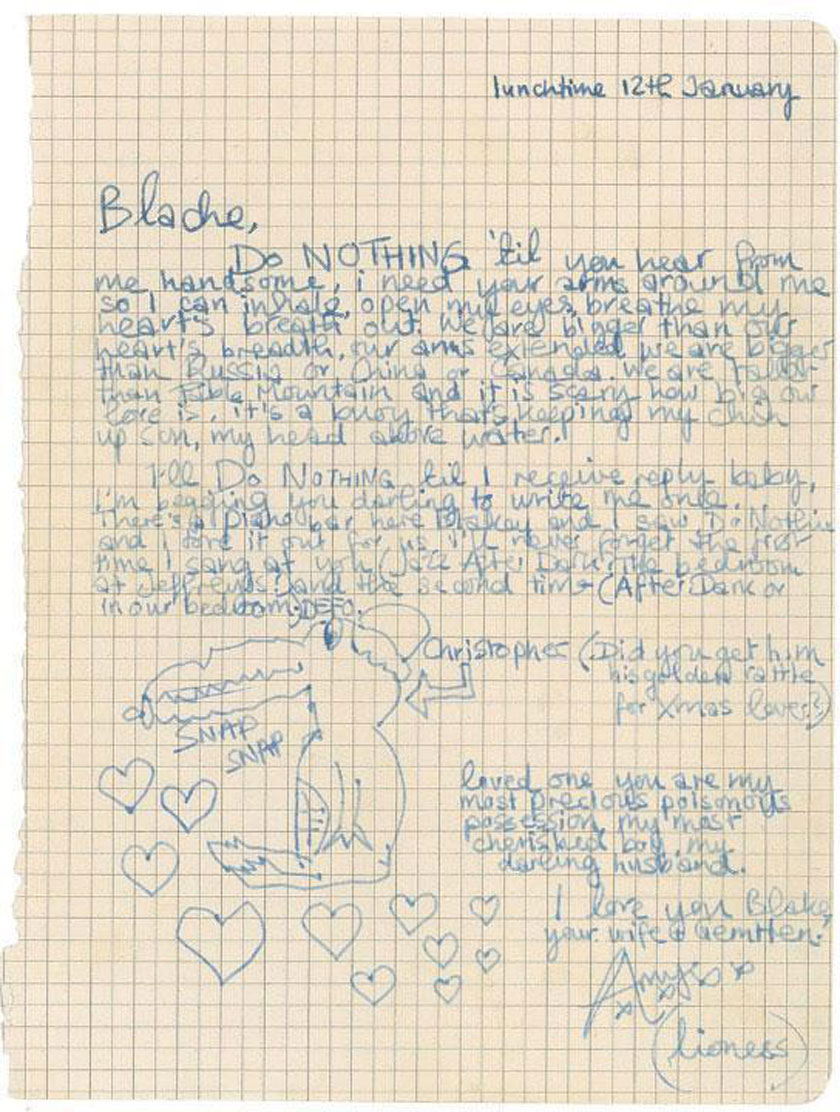 lunchtime 12th January
Blache,
Do NOTHING 'til you hear from
me handsome, i need your arms around me
so I can inhale, open my eyes, breathe my
heart's breath out. We are bigger than our
heart's breadth, our arms extended we are bigger
than Russia or China or Canada. We are taller
than Table Mountain and it is scary how big our
love is, it's a buoy thats keeping my chin
up son, my head above water.!
I'll Do NOTHING til I receive reply baby,
I'm begging you darling to write me once.
There's a piano bar here Blakey and I saw Do Nothing
and i tore it out for us i'll never forget the first
time I sang at you (Jazz After Dark? The bedroom
at Jeffreys? and the second time (After Dark or
in our bedroom. DEFO.
Christopher (Did you get him
his golden rattle
for Xmas lover?)
SNAP
SNAP
loved one you are my
most precious poisonous
possession, my most
cherished boy, my
darling husband.
I love you Blake,
your wife
Amy xx
(lioness)